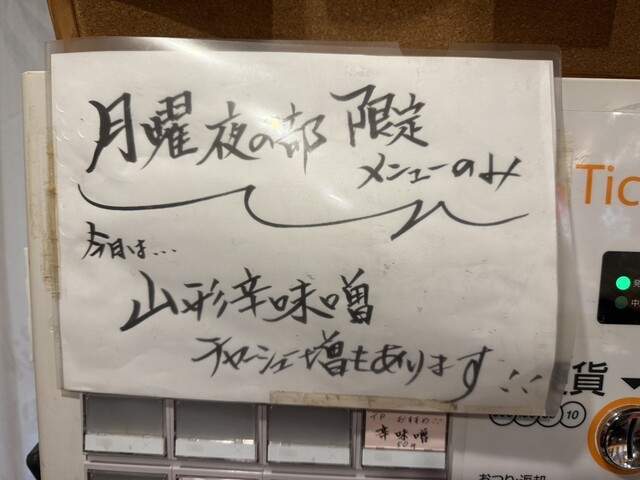 月曜夜の部 限定
メニューのみ
今日は...
山形辛味噌
チャーシュー増もあります!!
Tic
発
中
貨
10
おすすめ!!
辛味噌
50円
おつり・返却